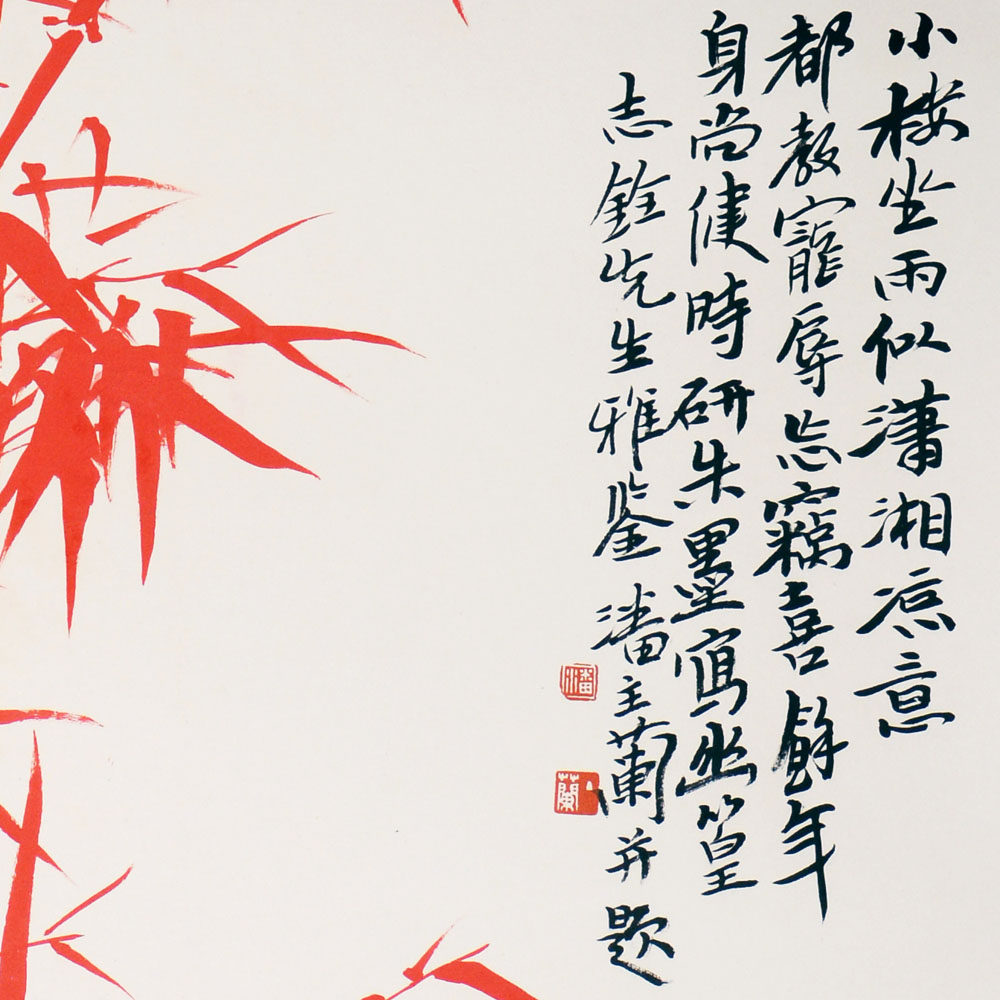 小楼坐雨似潇湘凉意
都教寵辱忘竊喜餘年
身尚健時研朱墨寫幽篁
志銓先生雅鉴潘主蘭并题
潘
蘭